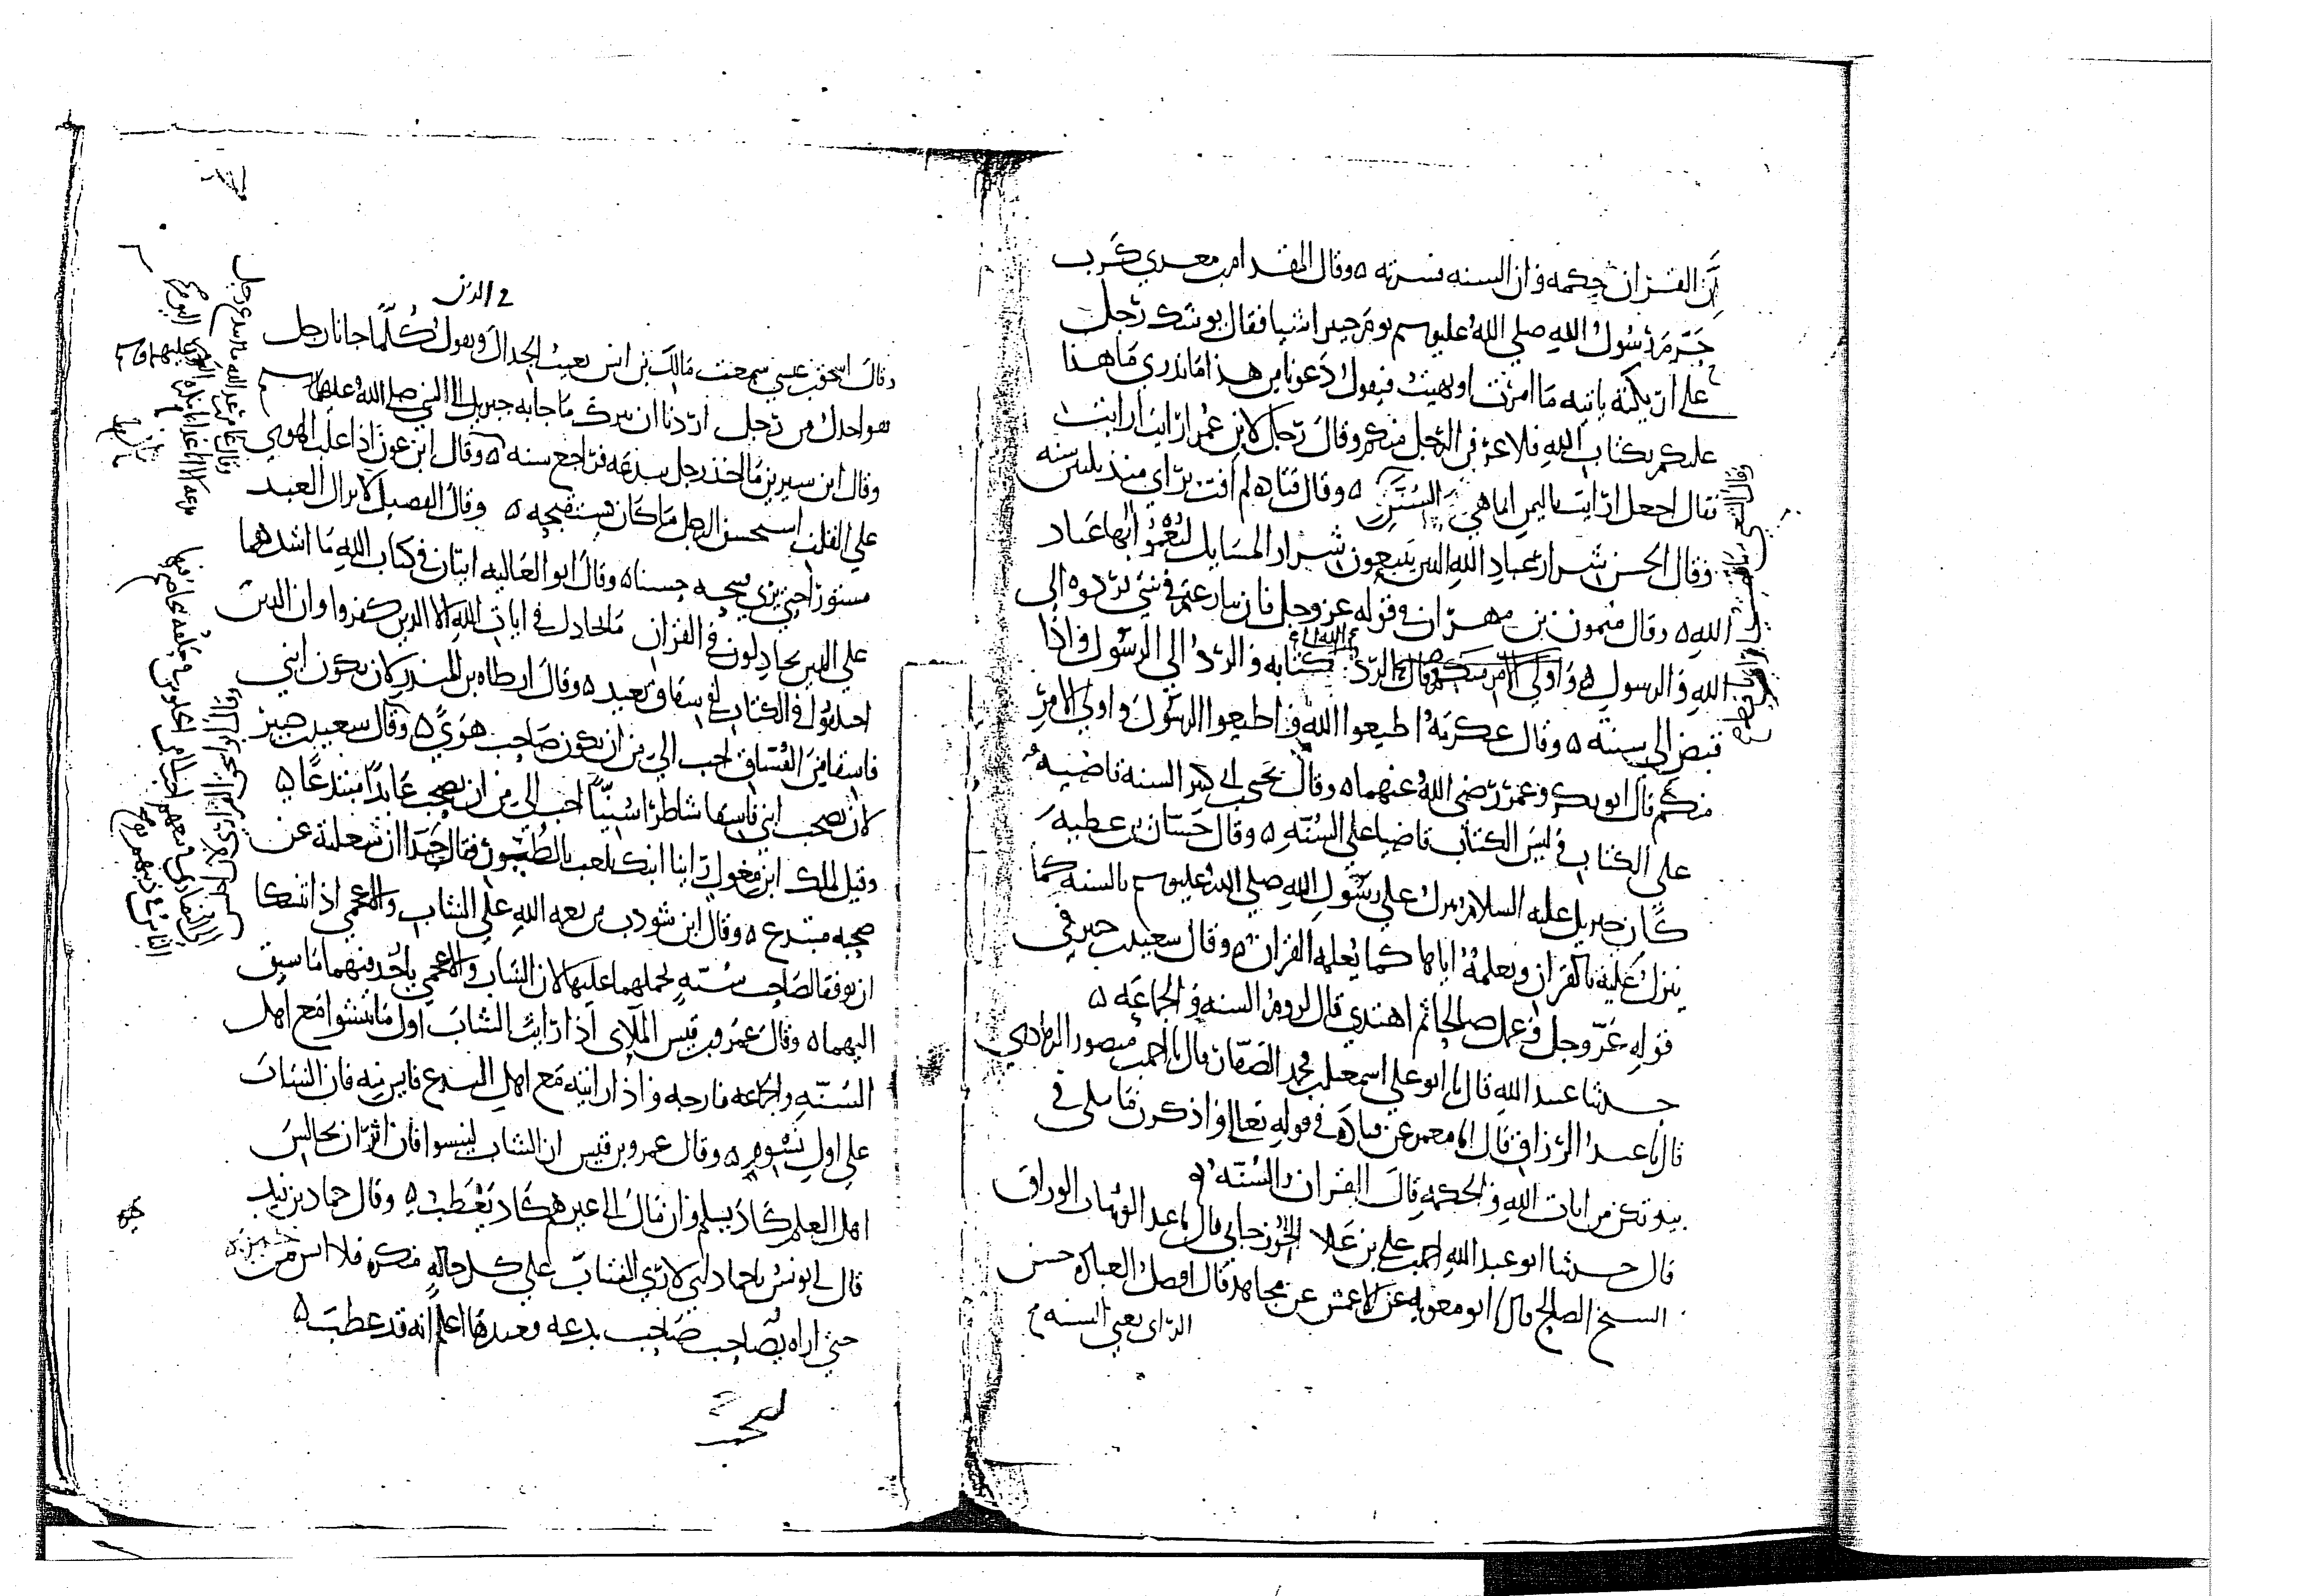 ان القران احكمه وان السنه فسرته ٥ وقال المقدام بن معدي كرب
حرم رسول الله صلي الله عليه وسلم يوم خيبر اشيا فقال يوشك رجل
علي اريكته ياتيه ما امرت او نهيت فيقول دعونا من هذا ما ندري ما هذا
عليكم بكتاب الله فلا عرفن الرجل منكم وقال رجل لابن عمر ارايت ارايت
فقال اجعل ارايت باليمن انما هي السنن ٥ وقال قتاده لم افت براي منذ ثلثين سنه
وقال الحسن شرار عباد الله الذين يتبعون شرار المسايل ليعموا بها عباد
الله ٥ وقال ميمون بن مهران في قوله عز وجل فان تنازعتم في شي فردوه الي
الله والرسول واولي الامر منكم قال الرد الي الله الي كتابه والرد الي الرسول فاذا
قبض الي سنته ٥ وقال عكرمه اطيعوا الله واطيعوا الرسول واولي الامر
منكم قال ابو بكر وعمر رضي الله عنهما ٥ وقال يحيي بن ابي كثير السنه قاضيه
علي الكتاب وليس الكتاب قاضيا علي السنه ٥ وقال حسان بن عطيه
كان جبريل عليه السلام ينزل علي رسول الله صلي الله عليه وسلم بالسنه كما
ينزل عليه بالقران ويعلمه اياها كما يعلمه القران ٥ وقال سعيد بن جبير في
قوله عز وجل وعمل صالحا ثم اهتدي قال لزوم السنه والجماعه ٥
حدثنا عبد الله قال نا ابو علي اسمعيل بن محمد الصفار قال نا احمد بن منصور الرمادي
قال نا عبد الرزاق قال انا معمر عن قتاده في قوله تعالي واذكرن ما يتلي في
بيوتكن من ايات الله والحكمه قال القران والسنه ٥
قال حدثنا ابو عبد الله احمد بن علي بن علا الجوزجاني قال نا عبد الوهاب الوراق
الشيخ الصالح قال نا ابو معويه عن الاعمش عن مجاهد قال افضل العباده حسن
الراي يعني السنه
وقال اسحق بن عيسي سمعت مالك بن انس يعيب الجدال ويقول كلما جانا رجل
هو اجدل من رجل اردنا ان نترك ما جا به جبريل الي النبي صلي الله عليهما وسلم
وقال ابن سيرين ما اخذ رجل ببدعه فراجع سنه ٥ وقال ابن عون اذا غلب الهوي
علي القلب استحسن الرجل ما كان يستقبحه ٥ وقال الفضيل لا يزال العبد
مستورا حتي يري قبيحه حسنا ٥ وقال ابو العاليه ايتان في كتاب الله ما اشدهما
علي الذين يجادلون في القران ما يجادل في ايات الله الا الذين كفروا وان الذين
اختلفوا في الكتاب لفي شقاق بعيد ٥ وقال ارطاه بن المنذر لان يكون ابني
فاسقا من الفساق احب الي من ان يكون صاحب هوي ٥ وقال سعيد بن جبير
لان يصحب ابني فاسقا شاطرا سنيا احب الي من ان يصحب عابدا مبتدعا ٥
وقيل لملك ابن مغول راينا ابنك يلعب بالطيور فقال حبذا ان شغلته عن
صحبه مبتدع ٥ وقال ابن شوذب من نعمه الله علي الشاب والاعجمي اذا تنسكا
ان يوفقا لصاحب سنه يحملهما عليها لان الشاب والاعجمي ياخذ فيهما ما سبق
اليهما ٥ وقال عمرو بن قيس الملاي اذا رايت الشاب اول ما ينشوا مع اهل
السنه والجماعه فارجه واذا رايته مع اهل البدع فايس منه فان الشاب
علي اول نشوه ٥ وقال عمرو بن قيس ان الشاب لينشوا فان اثر ان يجالس
اهل العلم كاد يسلم وان مال الي غيرهم كاد يعطب ٥ وقال حماد بن زيد
قال لي يونس يا حماد اني لاري الشاب علي كل حاله منكره فلا ايس من خيره
حتي اراه يصاحب صاحب بدعه فعندها اعلم انه قد عطب ٥